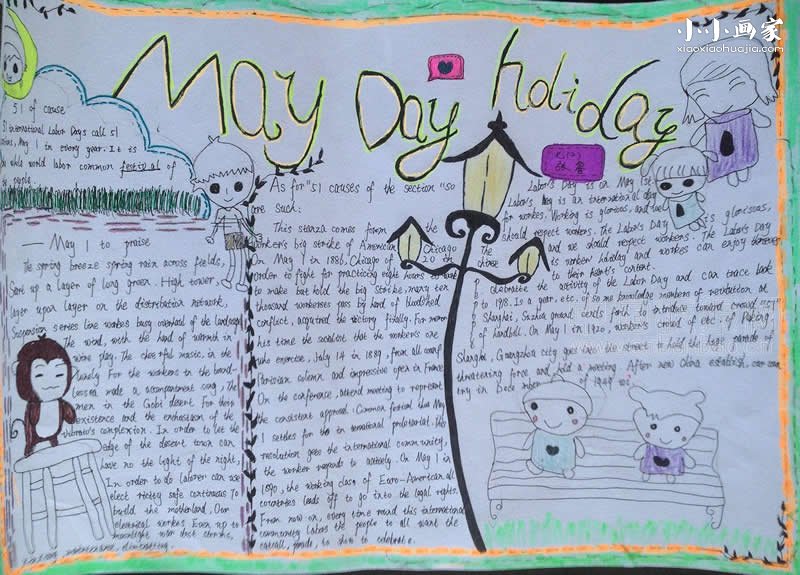 小小画家
xiaoxiaohuajia.com
May Day holiday
51 of cause
51 international Labor Days call 51
May 1 in every year. It is
whole world labor common festival of
people
— May 1 to praise
The spring breeze spring rain across fields,
Start up a layer of long green. High tower,
layer upon layer on the distribution network,
Suspension series line workes busy overhead of the landscape
The wind, with the hand of warmth in
wire play. The cheerful music, in the
lonely For the workers in the
made a accompaniment song, The
men in the Gobi desert For their
existence and the enthusiasm of the
complexion. In order to let the
edge of the desert town can
have no the light of the night,
In order to do laborer can use
electricity safe continuous To
build the motherland, Our
electrical workes Even up to
moonlight war dust storms,
As for "51 causes of the section "so
are such:
This stanza comes form the
worker's big strike of American Chicago
On May 1 in 1886, Chicago of 20 in
order to fight for practicing eight hours to work
to make but hold the big strike, many ten
thousand workerses pass by hard of bloodshed
conflict, acquired the victory finally. For memor
this time the socialist that the worker's one
who exercise, July 14 in 1889, from all world
Parisian solemn and impressive open in France
On the conference, attend meeting to represent
the consistent approval: Common festival thus May
1 settles for the international proletariat. this
resolution gets the international community,
the worker regards to actively. On May 1 in
1890, the working class of Euro-American all
countries leads off to go into the legal rights.
From now on, every time round this international
community labors the people to all want the
catcall, parade, to show to celebrate.
七(二)
Labor's Day is on May 1st
Labor's Day is an international day
for workes. Working is glorious, and we
should respect workers. The Labor's Day is glorioseas,
and we should respect workers. The Labor's Day
The is worker holiday and workes can enjoy themselves
chinese to their heart's content.
celebrate the activity of the Labor Day and can trace back
to 1918. Is a year, etc. of some knowledge members of revolution at
Shanghai, Suzhou ground sends forth to introduce toward crowd "51"
of handbill. On May 1 in 1920, worker's crowd of etc. of Peking,
Shanghai, Guangzhou city goes into the street to hold the huge parade of
threatening force and hold a meeting. After new China establish, our coun
try in December of 1949